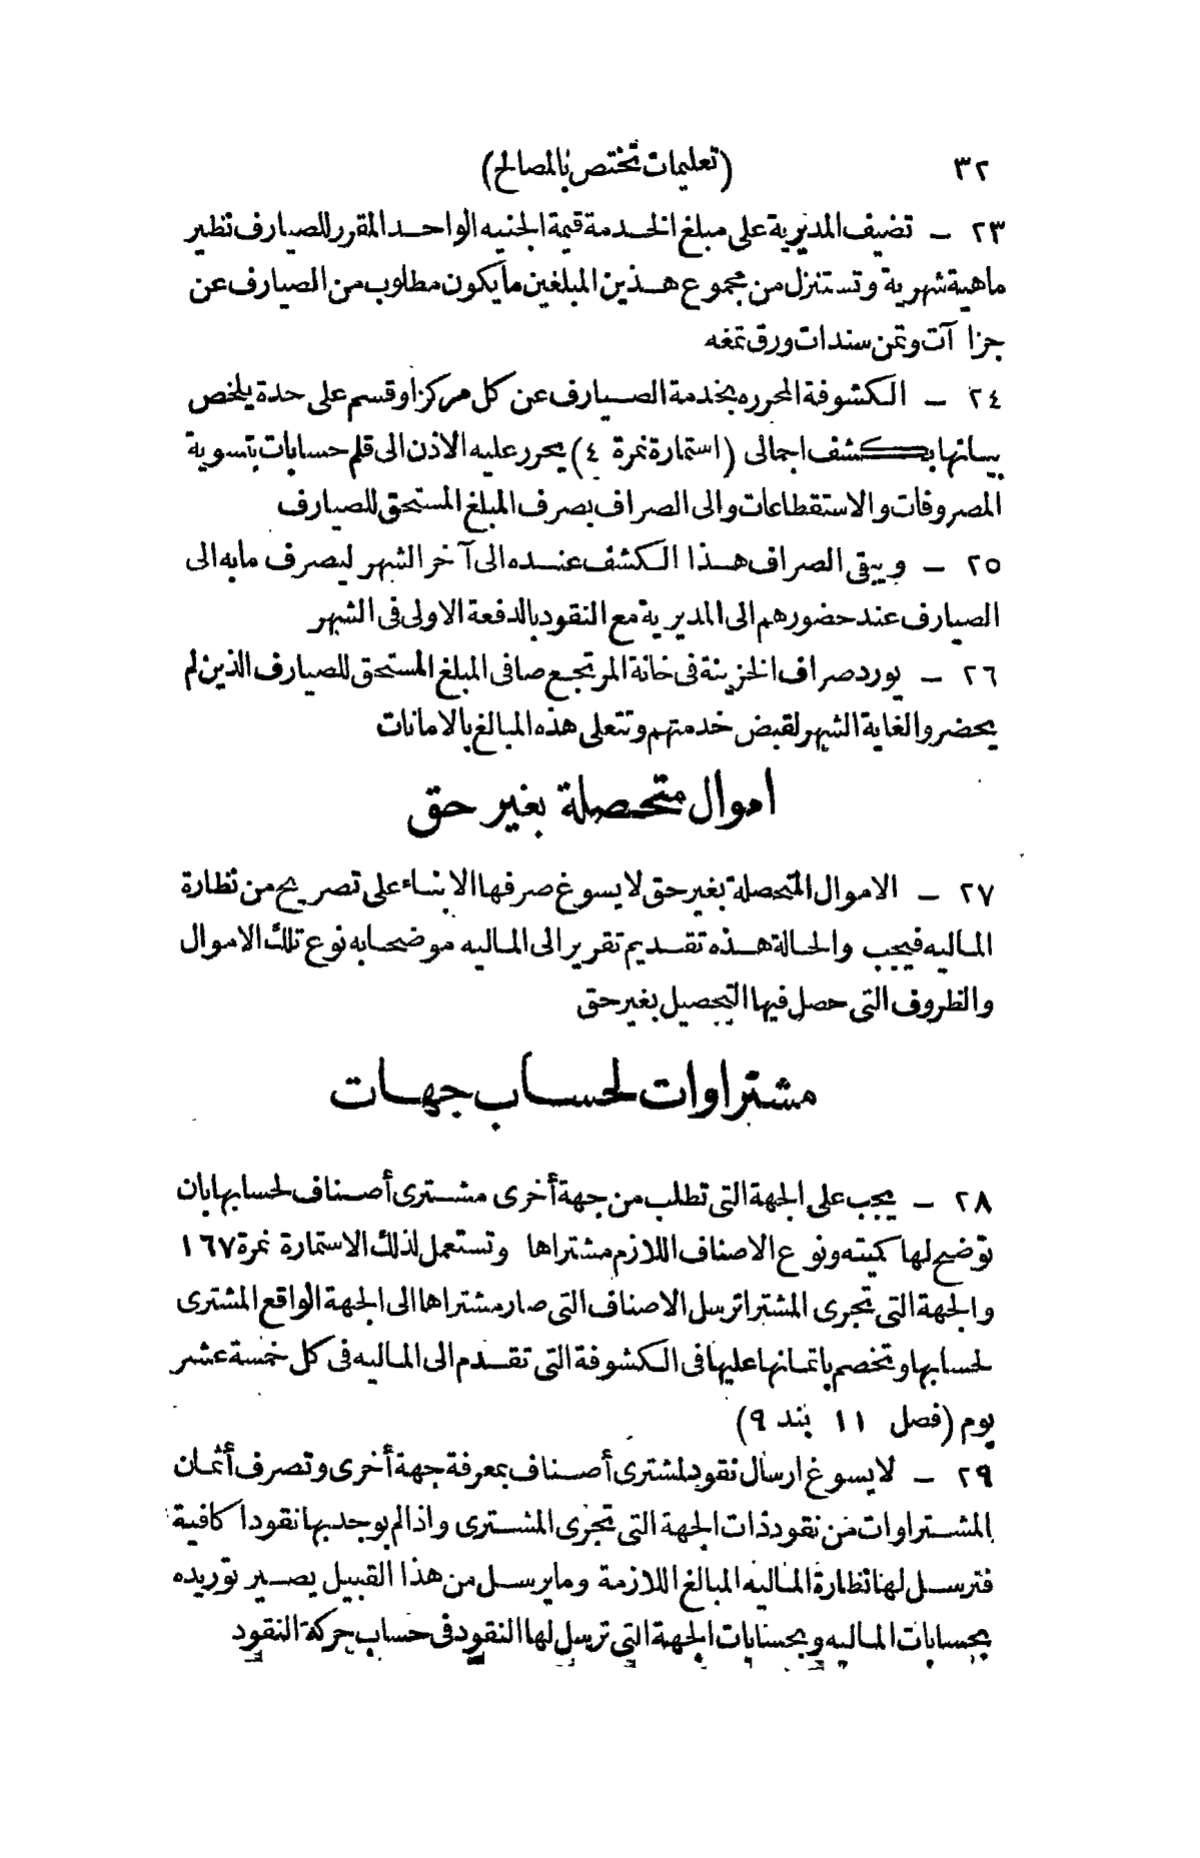 ٣٢ (تعليمات تختص بالمصالح)
٢٣ – تضيف المديرية على مبلغ الخدمة قيمة الجنيه الواحد المقرر للصيارف نظير
ماهية شهرية وتستنزل من مجموع هذين المبلغين ما يكون مطلوب من الصيارف عن
جزا آت وثمن سندات ورق تمغه
٢٤ – الكشوفة المحرره بخدمة الصيارف عن كل مركز اوقسم على حدة يلخص
بيانها بكشف اجمالى (استمارة نمرة ٤) يحرر عليه الاذن الى قلم حسابات بتسوية
المصروفات والاستقطاعات والى الصراف بصرف المبلغ المستحق للصيارف
٢٥ – ويبقى الصراف هذا الكشف عنده الى آخر الشهر ليصرف مابه الى
الصيارف عند حضورهم الى المديرية مع النقود بالدفعة الاولى فى الشهر
٢٦ – يورد صراف الخزينة فى خانة المرتجع صافى المبلغ المستحق للصيارف الذين لم
يحضروا لغاية الشهر لقبض خدمتهم وتتعلى هذه المبالغ بالامانات
اموال متحصلة بغير حق
٢٧ – الاموال المتحصلة بغير حق لا يسوغ صرفها الا بناء على تصريح من نظارة
الماليه فيجب والحالة هذه تقديم تقرير الى الماليه موضحا به نوع تلك الاموال
والظروف التى حصل فيها التحصيل بغير حق
مشتراوات لحساب جهات
٢٨ – يجب على الجهة التى تطلب من جهة أخرى مشترى أصناف لحسابها بان
توضح لها كميته ونوع الاصناف اللازم مشتراها وتستعمل لذلك الاستمارة نمرة ١٦٧
والجهة التى تجرى المشترا ترسل الاصناف التى صار مشتراها الى الجهة الواقع المشترى
لحسابها وتخصم باثمانها عليها فى الكشوفة التى تقدم الى الماليه فى كل خمسة عشر
يوم (فصل ١١ بند ٩)
٢٩ – لا يسوغ ارسال نقود لمشترى أصناف بمعرفة جهة أخرى وتصرف أثمان
المشتراوات من نقود ذات الجهة التى تجرى المشترى واذا لم يوجد بها نقودا كافية
فترسل لها نظارة الماليه المبالغ اللازمة وما يرسل من هذا القبيل يصير توريده
بحسابات الماليه وبحسابات الجهة التى ترسل لها النقود فى حساب حركة النقود